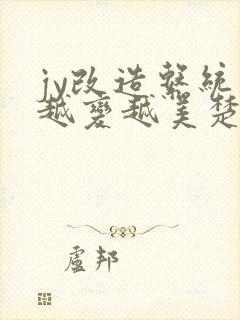 jy改造系統
越變越美楚
盧邦